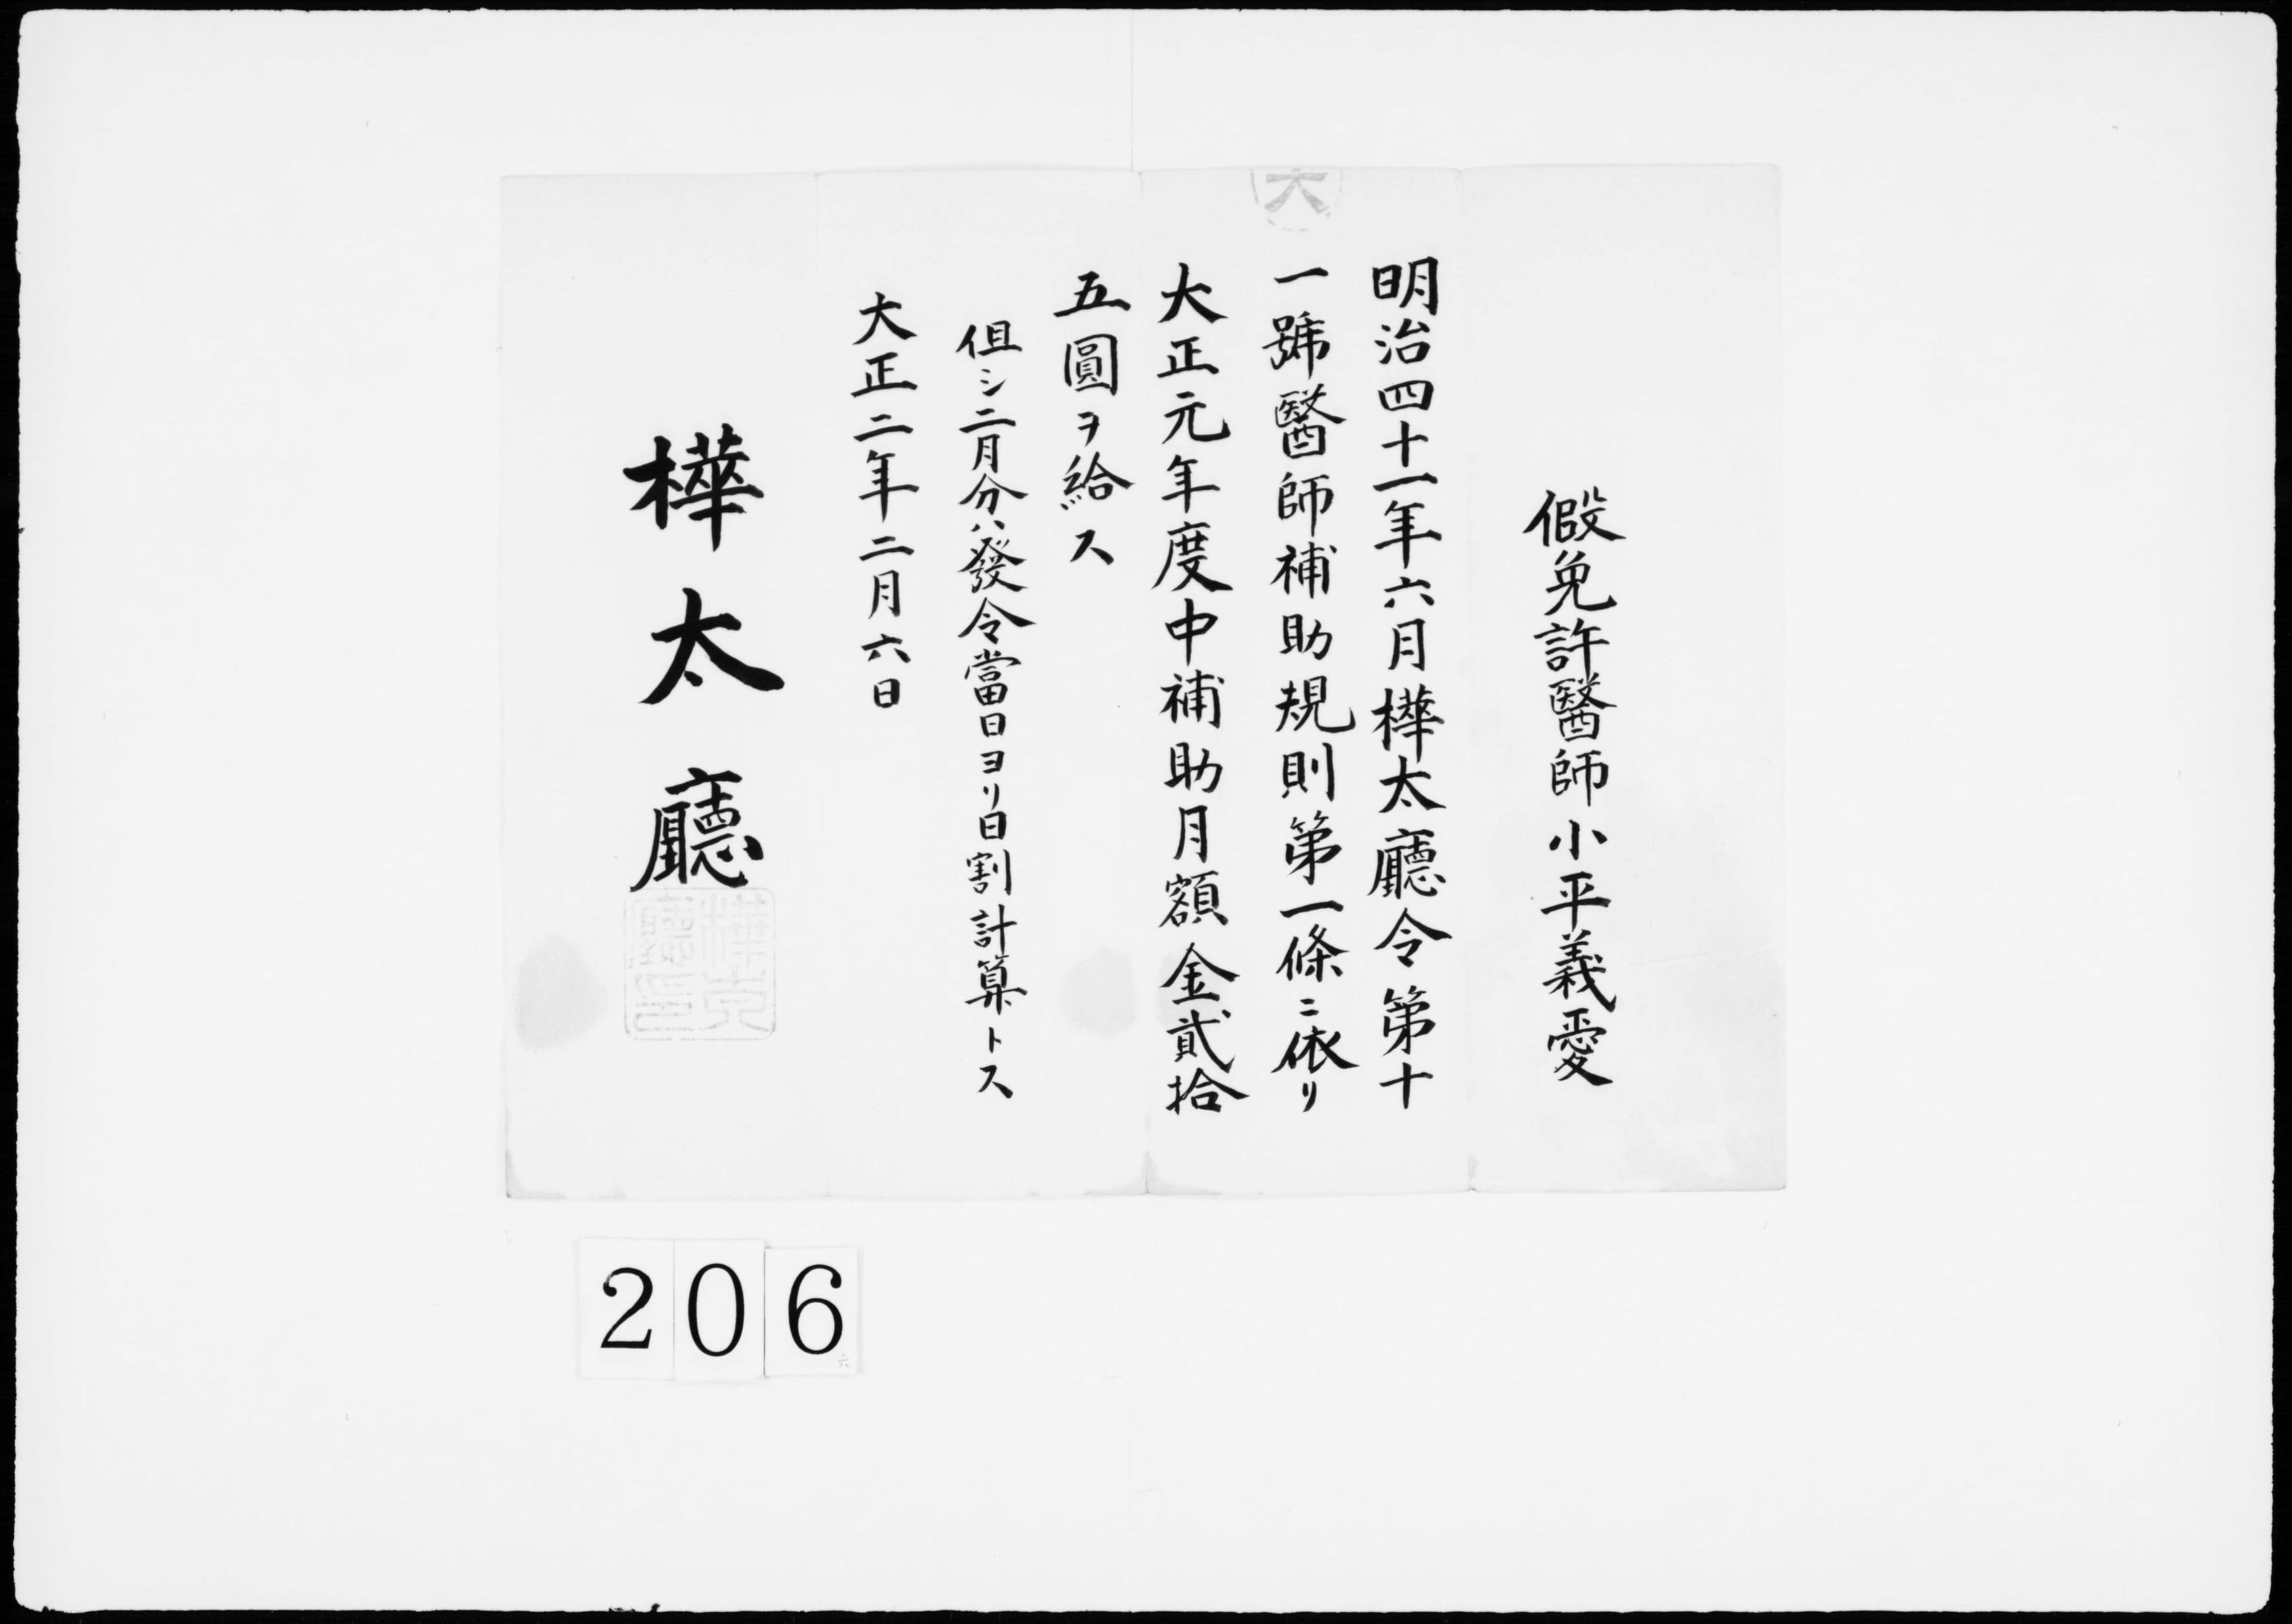 大
假免許醫師小平義愛
明治四十一年六月樺太廳令第十
一號醫師補助規則第一條ニ依リ
大正元年度中補助月額金貳拾
五圓ヲ給ス
但シ二月分ハ發令當日ヨリ日割計算トス
大正二年二月六日
樺太廳
樺太廳印
206
六